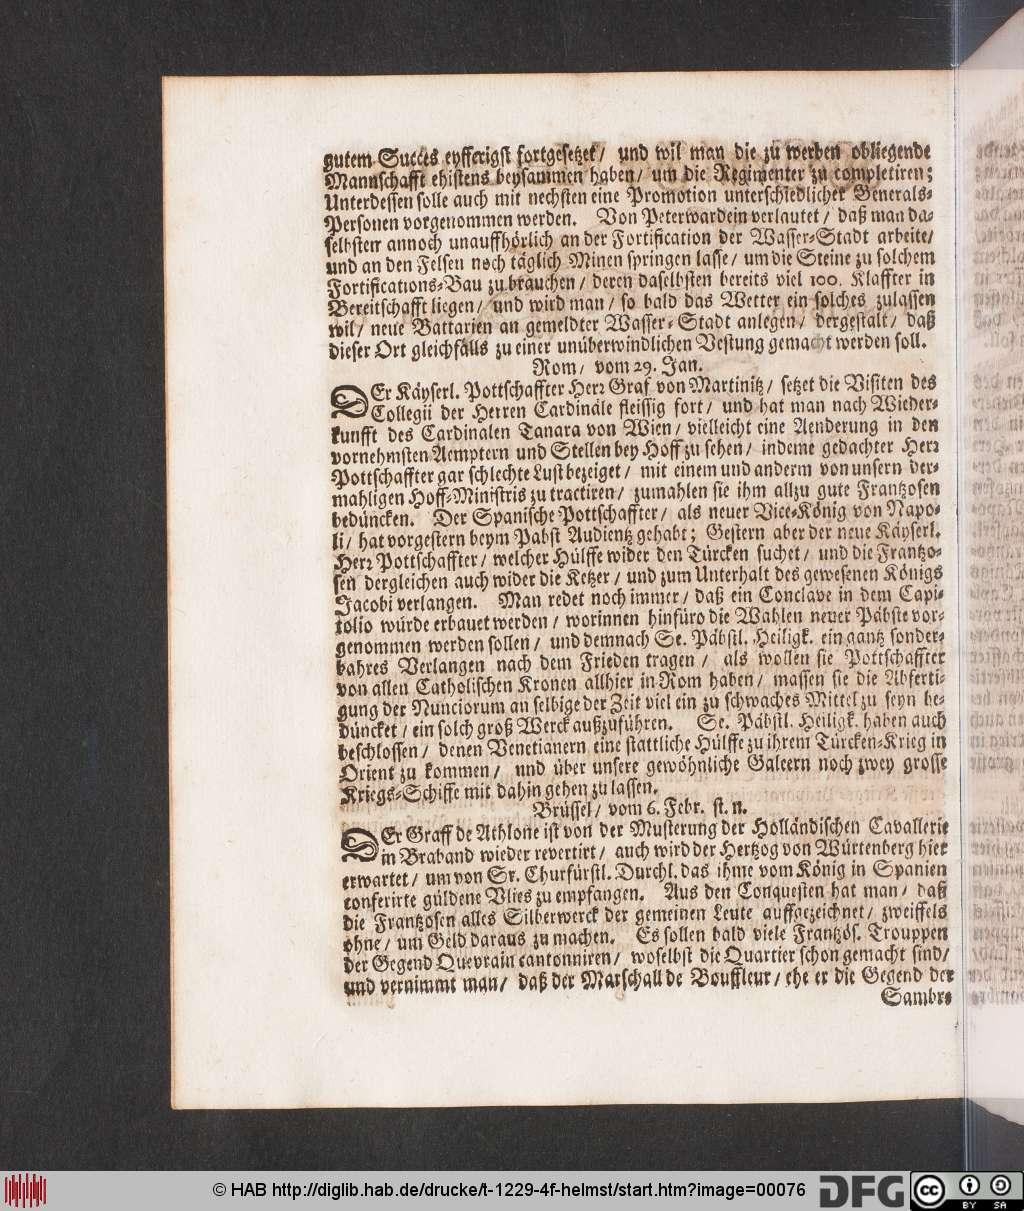 gutem Succes eyfferigst fortgesetzet/ und wil man die zu werben obliegende
Mannschafft ehistens beysammen haben/ um die Regimenter zu completiren;
Unterdessen solle auch mit nechsten eine Promotion unterschiedlicher Generals-
Personen vorgenommen werden. Von Peterwardein verlautet/ daß man da-
selbsten annoch unauffhörlich an der Fortification der Wasser-Stadt arbeite/
und an den Felsen noch täglich Minen springen lasse/ um die Steine zu solchem
Fortifications-Bau zu brauchen/ deren daselbsten bereits viel 100. Klaffter in
Bereitschafft liegen/ und wird man/ so bald das Wetter ein solches zulassen
wil/ neue Battarien an gemeldter Wasser-Stadt anlegen/ dergestalt/ daß
dieser Ort gleichfalls zu einer unüberwindlichen Vestung gemacht werden soll.
Rom/ vom 29. Jan.
DEr Käyserl. Pottschaffter Herr Graf von Martinitz/ setzet die Visiten des
Collegii der Herren Cardinäle fleissig fort/ und hat man nach Wieder-
kunfft des Cardinalen Tanara von Wien/ vielleicht eine Aenderung in den
vornehmsten Aemptern und Stellen bey Hoff zu sehen/ indeme gedachter Herr
Pottschaffter gar schlechte Lust bezeiget/ mit einem und anderm von unsern der-
mahligen Hoff-Ministris zu tractiren/ zumahlen sie ihm allzu gute Frantzosen
bedüncken. Der Spanische Pottschaffter/ als neuer Vice-König von Napo-
li/ hat vorgestern beym Pabst Audientz gehabt; Gestern aber der neue Käyserl.
Herr Pottschaffter/ welcher Hülffe wider den Türcken suchet/ und die Frantzo-
sen dergleichen auch wider die Ketzer/ und zum Unterhalt des gewesenen Königs
Jacobi verlangen. Man redet noch immer/ daß ein Conclave in dem Capi-
tolio würde erbauet werden/ worinnen hinfüro die Wahlen neuer Päbste vor-
genommen werden sollen/ und demnach Se. Päbstl. Heiligk. ein gantz sonder-
bahres Verlangen nach dem Frieden tragen/ als wollen sie Pottschaffter
von allen Catholischen Kronen allhier in Rom haben/ massen sie die Abferti-
gung der Nunciorum an selbige der Zeit viel ein zu schwaches Mittel zu seyn be-
düncket/ ein solch groß Werck außzuführen. Se. Päbstl. Heiligk. haben auch
beschlossen/ denen Venetianern eine stattliche Hülffe zu ihrem Türcken-Krieg in
Orient zu kommen/ nnd über unsere gewöhnliche Galeern noch zwey grosse
Kriegs-Schiffe mit dahin gehen zu lassen.
Brüssel/ vom 6. Febr. st. n.
DEr Graff de Athlone ist von der Musterung der Holländischen Cavallerie
in Braband wieder revertirt/ auch wird der Hertzog von Würtenberg hier
erwartet/ um von Sr. Churfürstl. Durchl. das ihme vom König in Spanien
conferirte güldene Vlies zu empfangen. Aus den Conquesten hat man/ daß
die Frantzosen alles Silberwerck der gemeinen Leute auffgezeichnet/ zweiffels
ohne/ um Geld daraus zu machen. Es sollen bald viele Frantzös. Trouppen
der Gegend Quevrain cantonniren/ woselbst die Quartier schon gemacht sind/
und vernimmt man/ daß der Marschall de Bouffleur/ ehe er die Gegend der
Sambre
© HAB http://diglib.hab.de/drucke/t-1229-4f-helmst/start.htm?image=00076 DFG cc BY SA